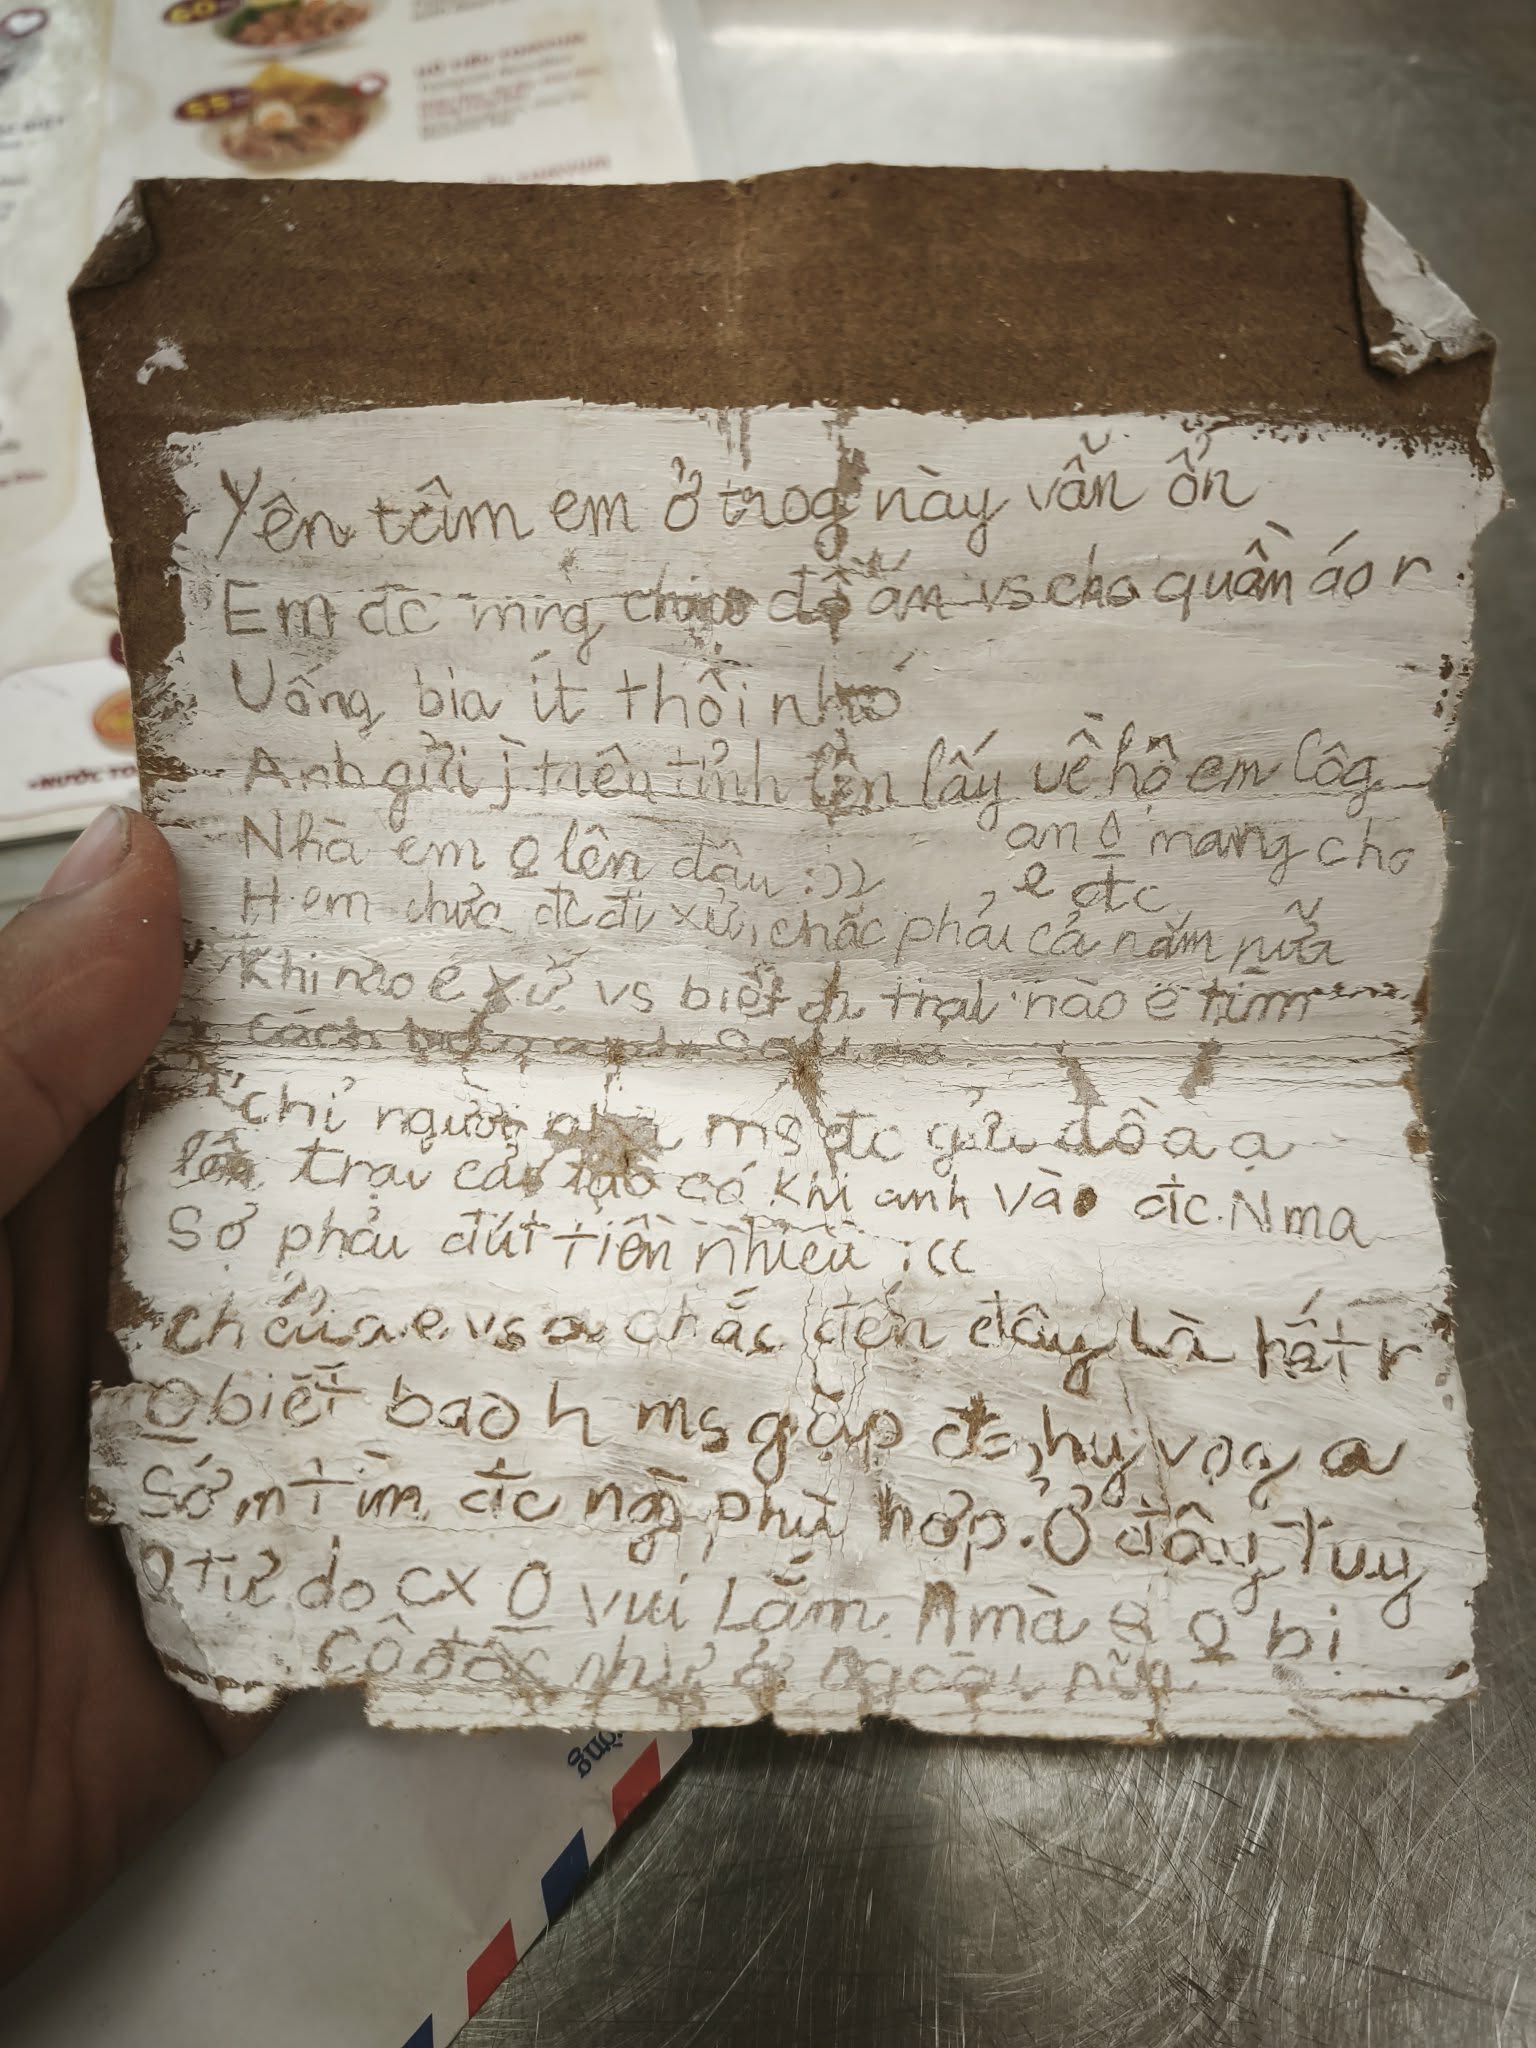 60
55
HỦ TIẾU
NƯỚC
Yên tâm em ở trog này vẫn ổn
Em đc mng cho đồ ăn vs cho quần áo r
Uống bia ít thôi nhó
Anh gửi j trên tỉnh lên lấy về hộ em lôg
Nhà em o lên đâu :))
an o mang cho
e đc
H em chưa đc đi xử, chắc phải cả năm nữa
Khi nào e xử vs biết đi trại nào e tìm
cách
chỉ người nhà ms đc gửi đồ a ạ
lên trại cải tạo có khi anh vào đc. Nma
Sợ phải đút tiền nhiều :((
ch của e vs a chắc đến đây là hết r
o biết bao h ms gặp đc, hy vọg a
Sớm tìm đc ng phù hợp. Ở đây tuy
o tự do cx o vui Lắm. Nmà e o bị
cô độc như ở ngoài nữa
ờng